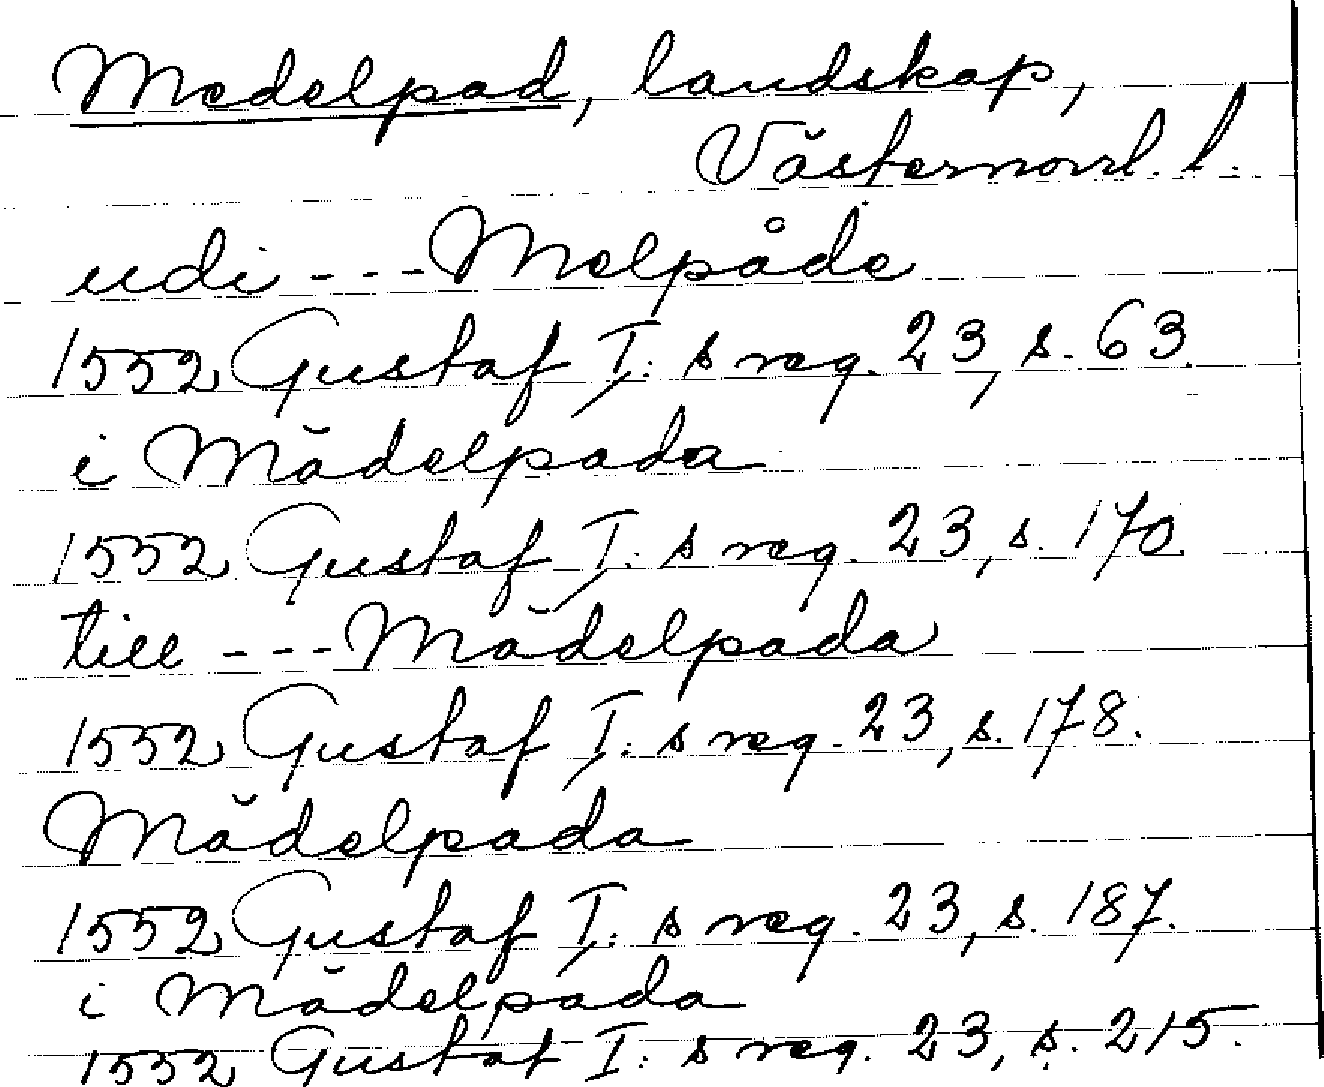 Medelpad, landskap,
Västernorrl. l.
udi --- Melpåde
1552 Gustaf I:s reg. 23, s. 63.
i Mädelpada
1552 Gustaf I:s reg. 23, s. 170
till --- Mädelpada
1552 Gustaf I:s reg. 23, s. 178.
Mädelpada
1552 Gustaf I:s reg. 23, s. 187.
i Mädelpada
1552 Gustaf I:s reg. 23, s. 215.